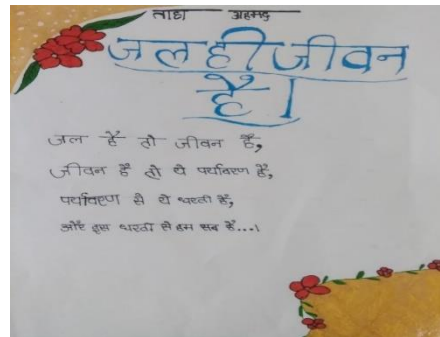 ताहा अहमद
जल ही जीवन
है।
जल है तो जीवन है,
जीवन है तो ये पर्यावरण है,
पर्यावरण से ये धरती है,
और इस धरती से हम सब हैं...।